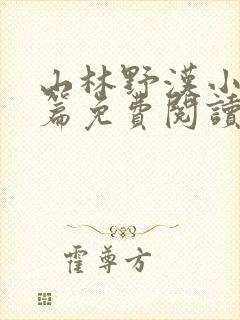 山林野漢小
篇免費閱讀
霍尊方